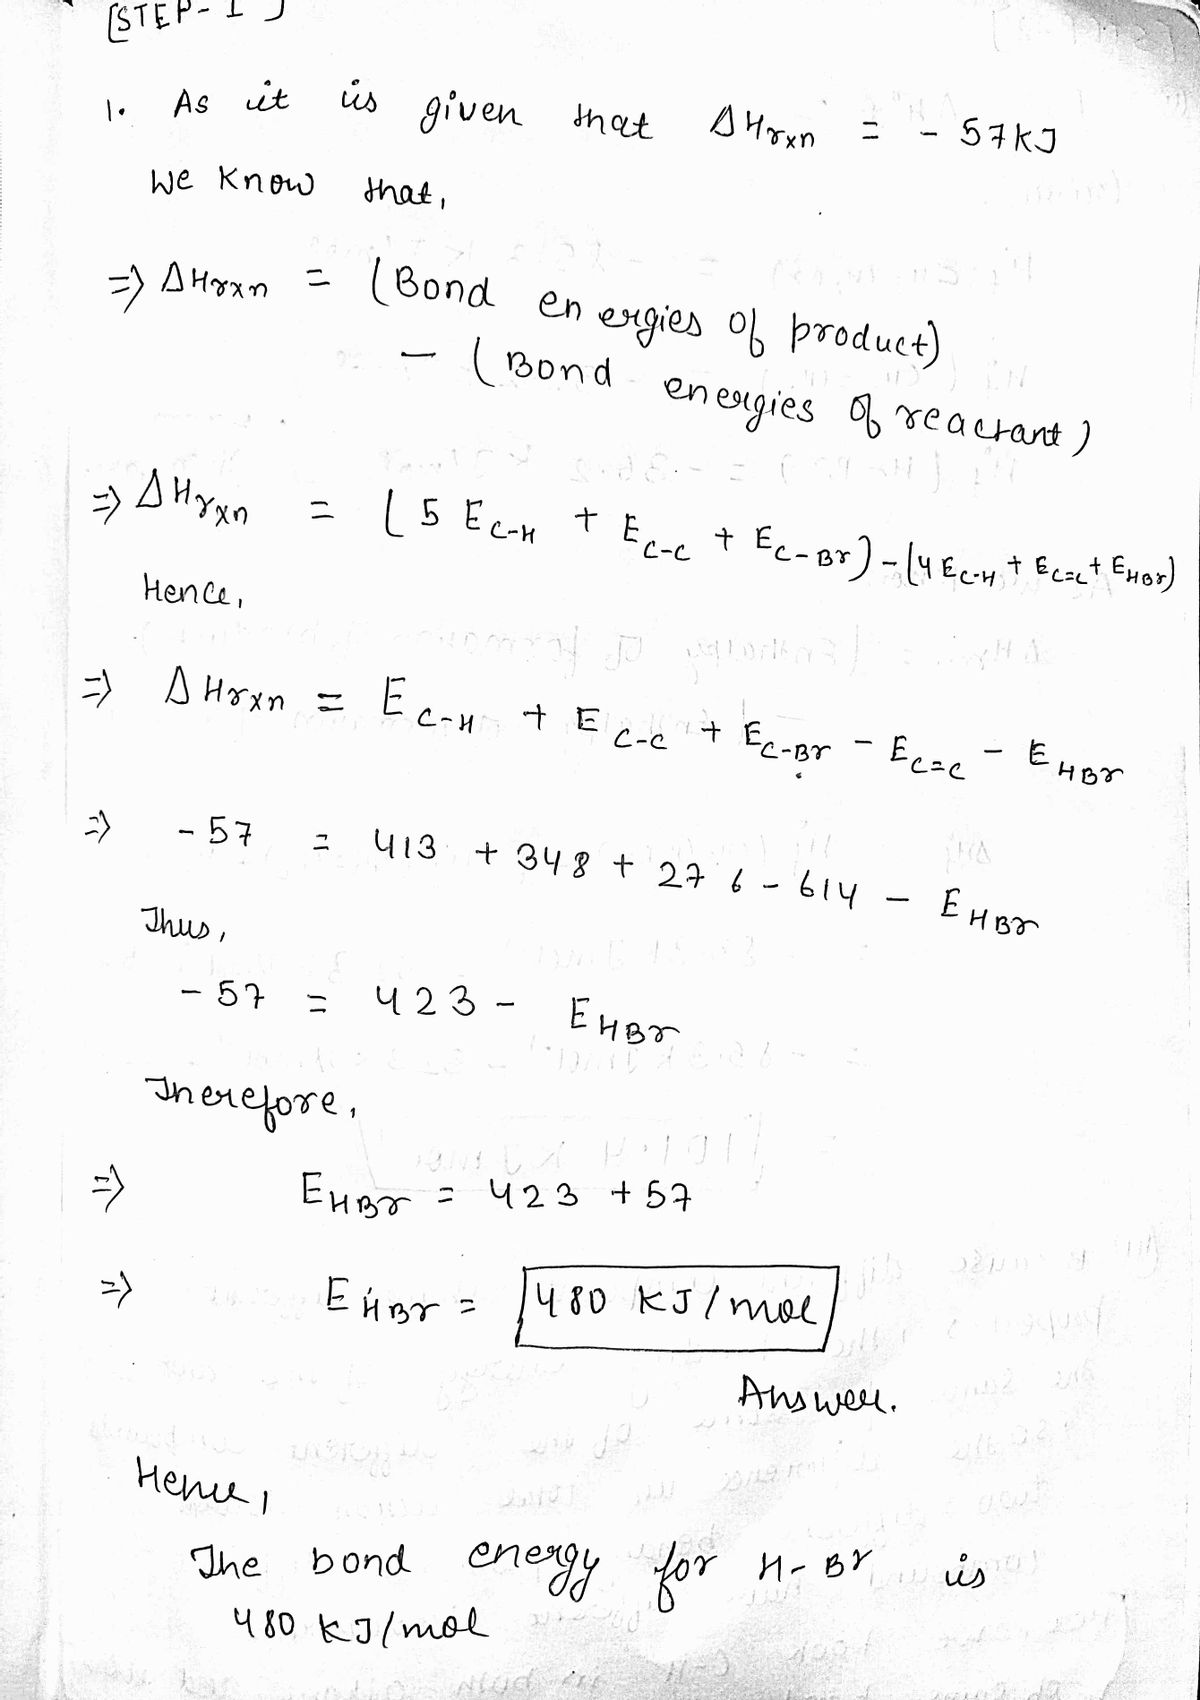 [STEP-I]
1. As it is given that ΔHrxn = - 57KJ
We know that,
=> ΔHrxn = (Bond energies of product)
- (Bond energies of reactant)
=> ΔHrxn = (5 E C-H + E C-C + E C-Br) - (4 E C-H + E C=C + E HBr)
Hence,
=> ΔHrxn = E C-H + E C-C + E C-Br - E C=C - E HBr
=> - 57 = 413 + 348 + 276 - 614 - E HBr
Thus,
- 57 = 423 - E HBr
Therefore,
=> E HBr = 423 + 57
=> E HBr = 480 KJ/mol
Answer.
Hence,
The bond energy for H-Br is
480 KJ/mol